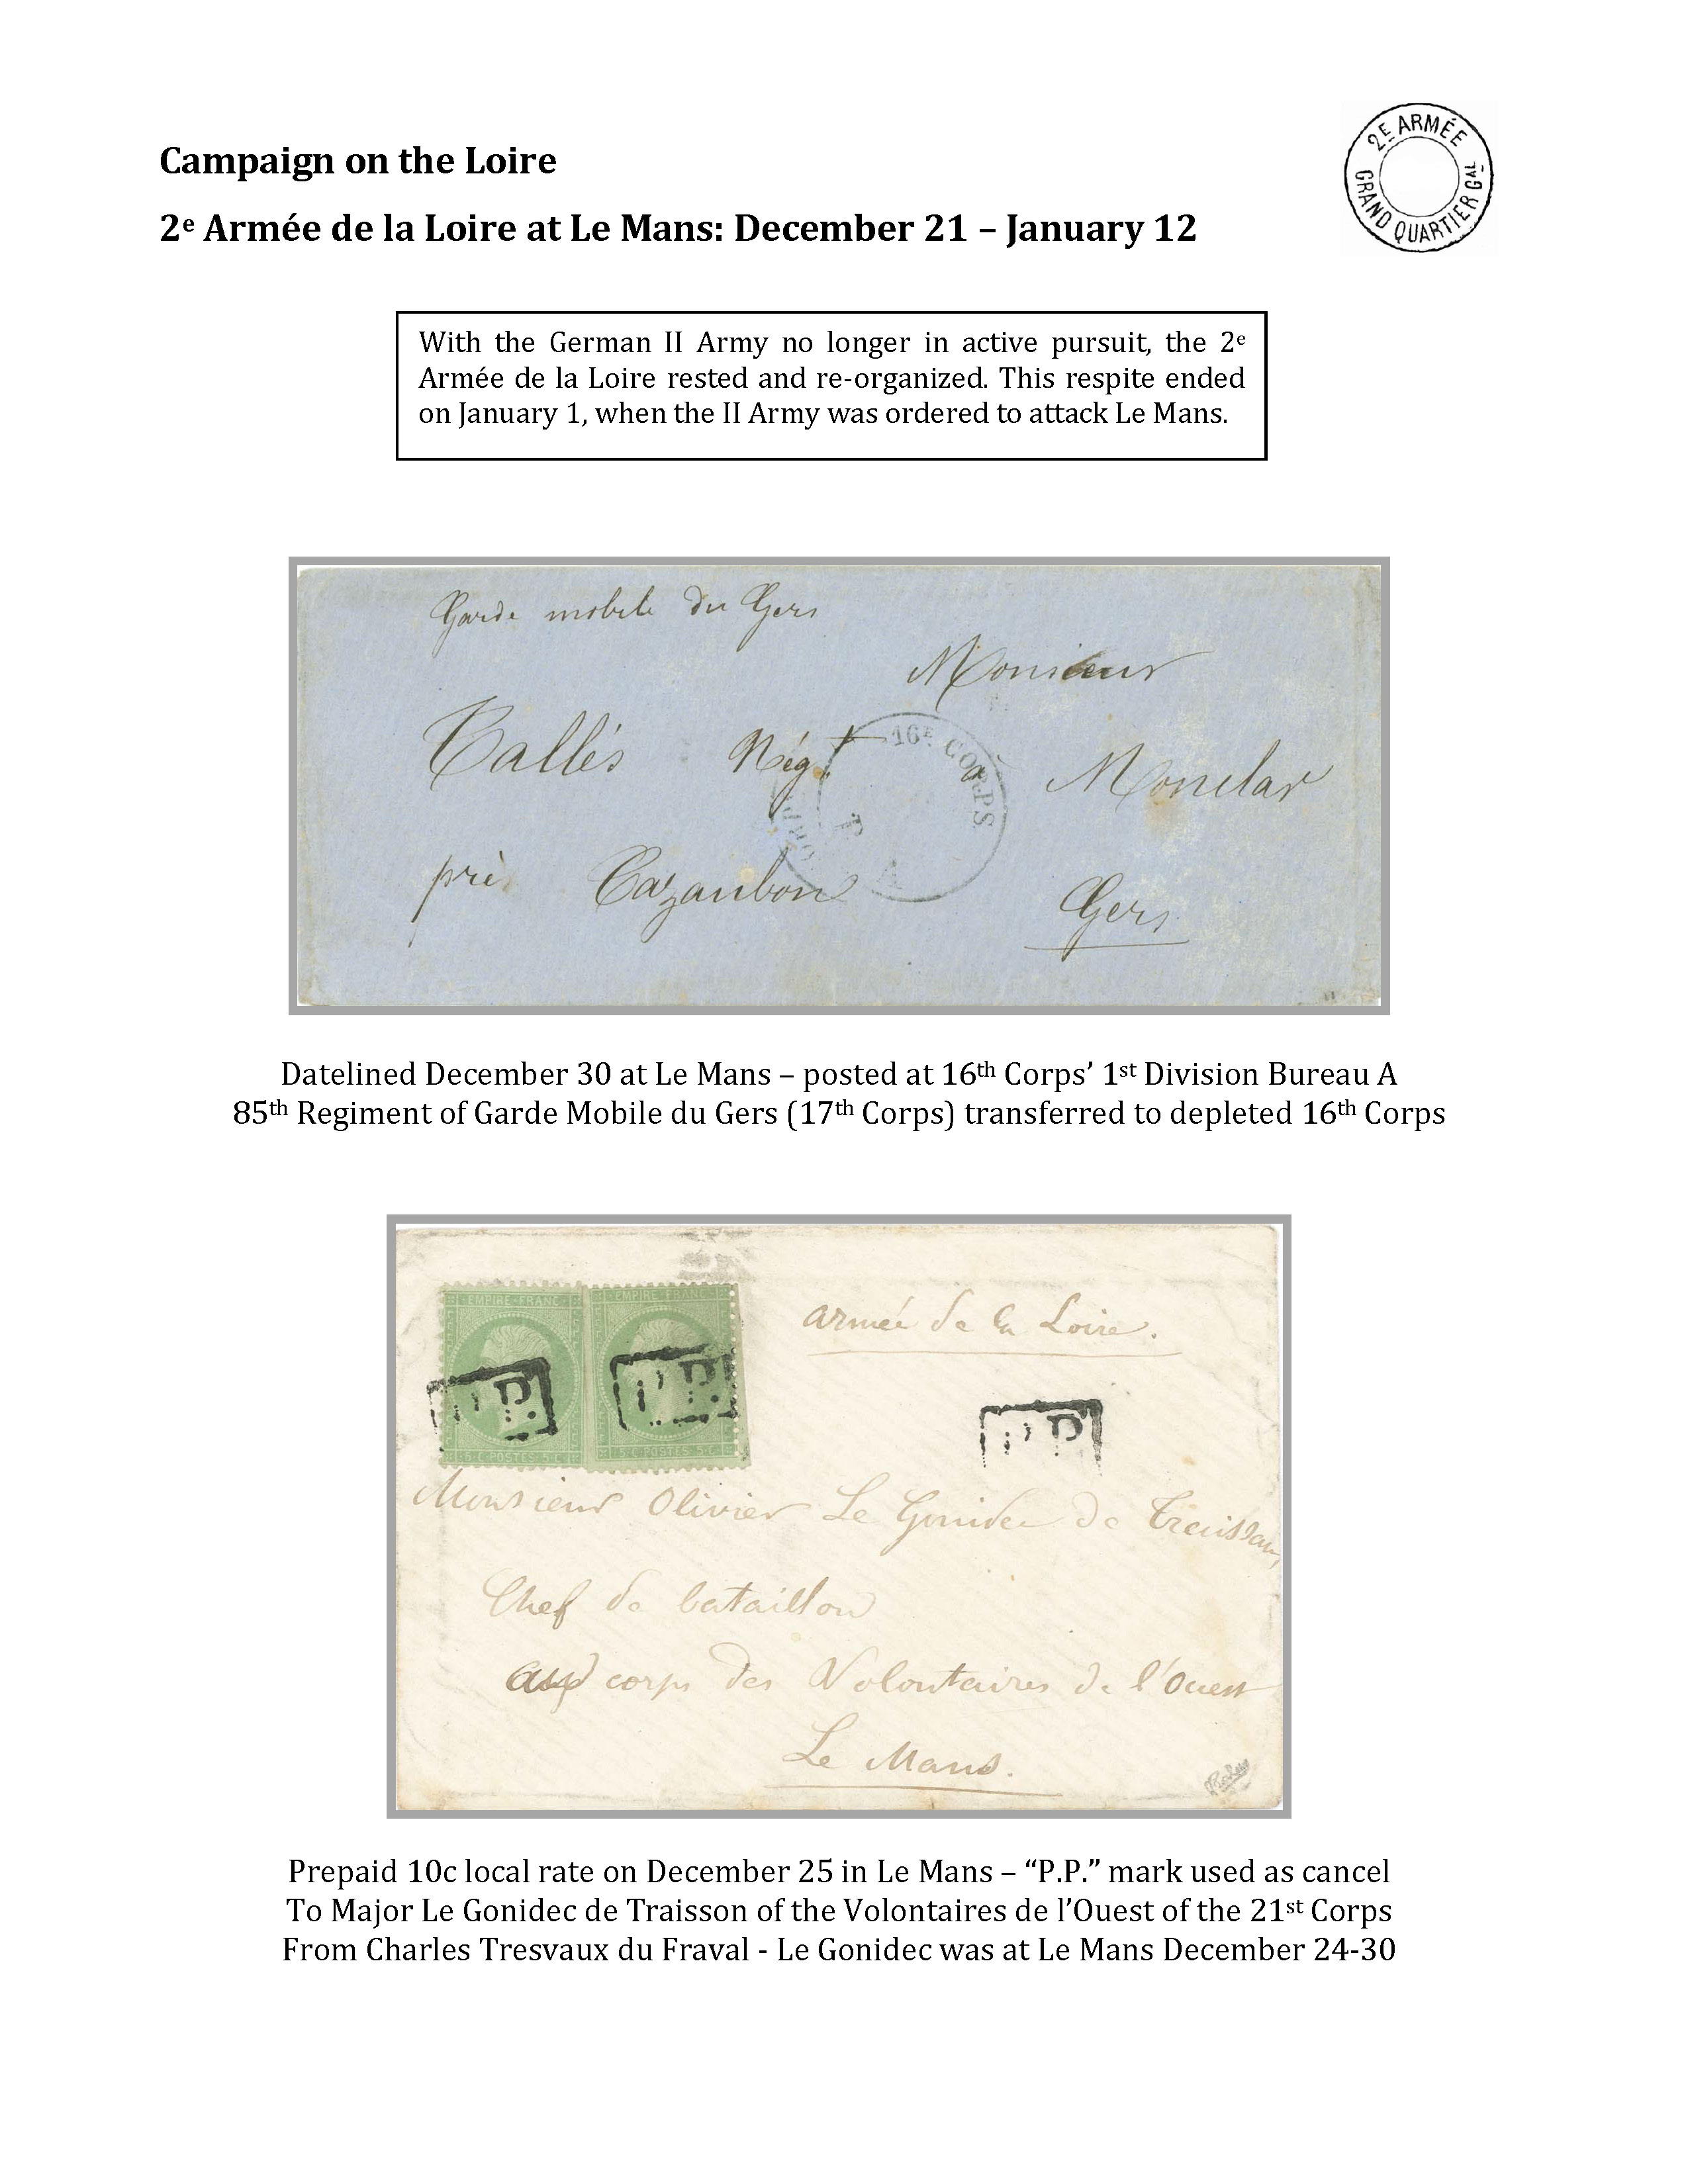 Campaign on the Loire
2E ARMÉE
GRAND QUARTIER GAL
2e Armée de la Loire at Le Mans: December 21 – January 12
With the German II Army no longer in active pursuit, the 2e
Armée de la Loire rested and re-organized. This respite ended
on January 1, when the II Army was ordered to attack Le Mans.
Garde mobile du Gers
Monsieur
Tallès Négt à Monclar
16E CORPS
près Cazaubon Gers
Datelined December 30 at Le Mans – posted at 16th Corps’ 1st Division Bureau A
85th Regiment of Garde Mobile du Gers (17th Corps) transferred to depleted 16th Corps
EMPIRE FRANC EMPIRE FRANC
armée de la Loire.
P.P. P.P. P.P.
5 C POSTES 5 C 5 C POSTES 5 C
Monsieur Olivier Le Gonidec de Treissan,
Chef de bataillon
corps des Volontaires de l'Ouest
Le Mans.
Prepaid 10c local rate on December 25 in Le Mans – “P.P.” mark used as cancel
To Major Le Gonidec de Traisson of the Volontaires de l’Ouest of the 21st Corps
From Charles Tresvaux du Fraval - Le Gonidec was at Le Mans December 24-30